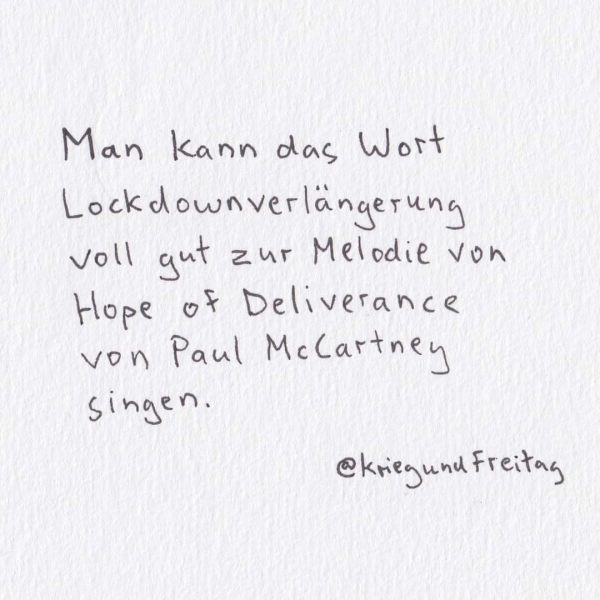 Man kann das Wort
Lockdownverlängerung
voll gut zur Melodie von
Hope of Deliverance
von Paul McCartney
singen.
@kriegundfreitag